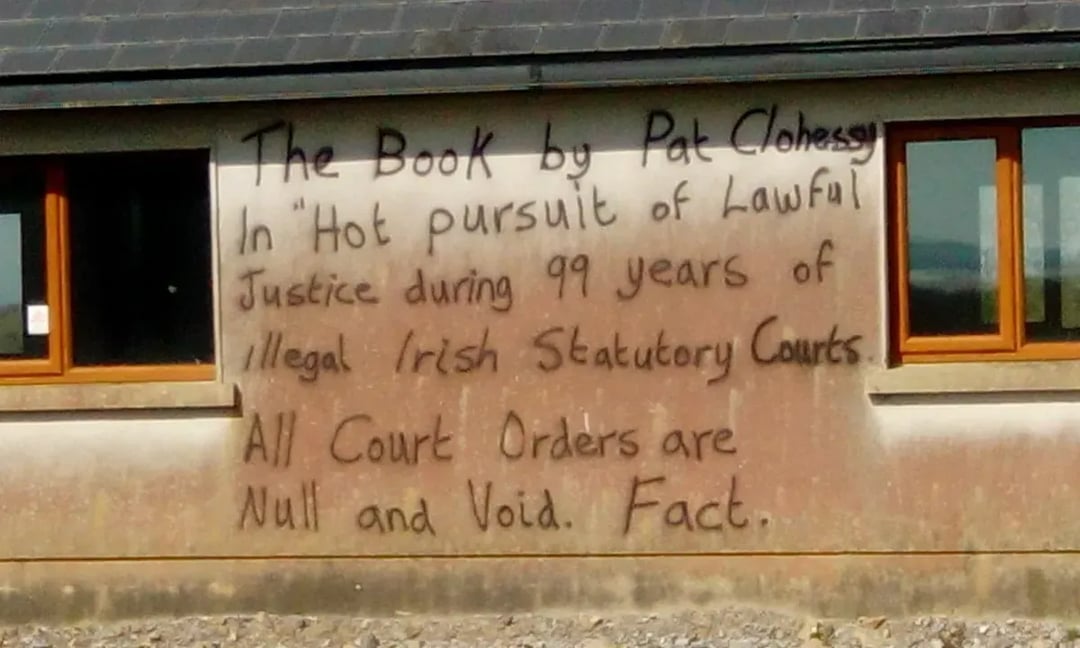 The Book by Pat Clohessy
In "Hot pursuit of Lawful
Justice during 99 years of
illegal Irish Statutory Courts.
All Court Orders are
Null and Void. Fact.